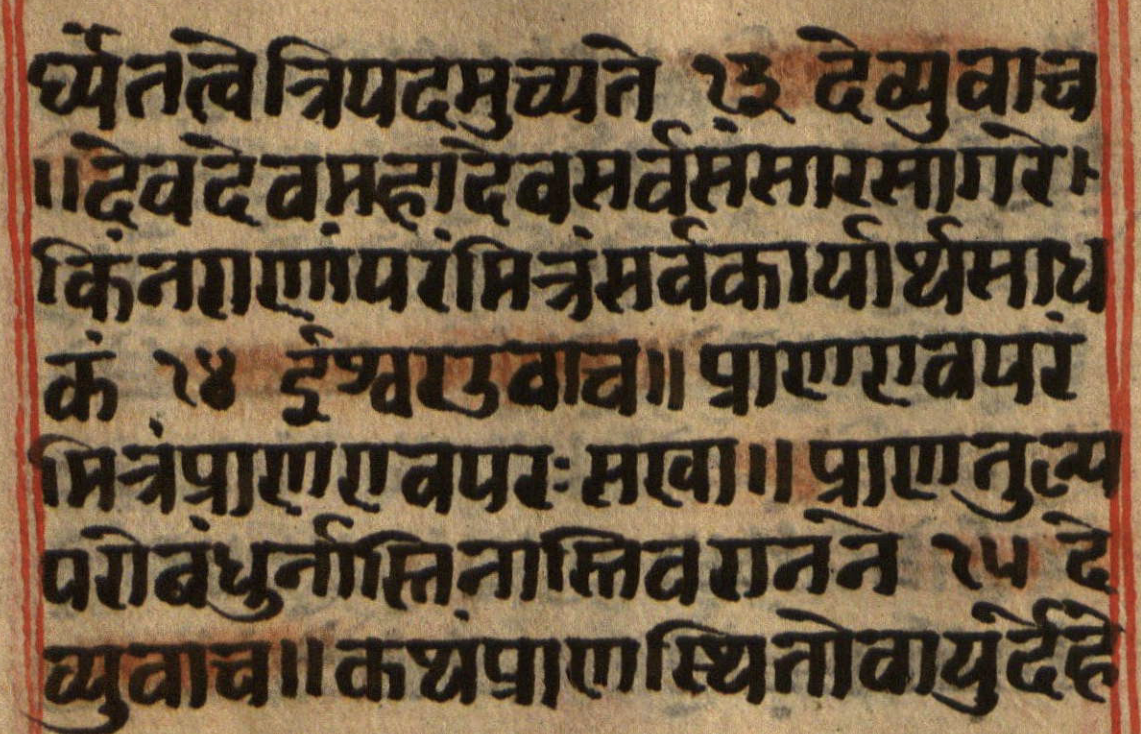 र्ध्येतत्वेत्रिपदमुच्यते १३ देव्युवाच
॥देवदेवमहादेवसर्वसंसारसागरे।
किंनराणांपरंमित्रंसर्वकार्यार्थसाध
कं १४ ईश्वरउवाच॥ प्राणएवपरं
मित्रंप्राणएवपरः सखा॥ प्राणतुल्य
परोबंधुर्नास्तिनास्तिवरानने १५ दे
व्युवाच॥ कथंप्राणस्थितोवायुर्देहे